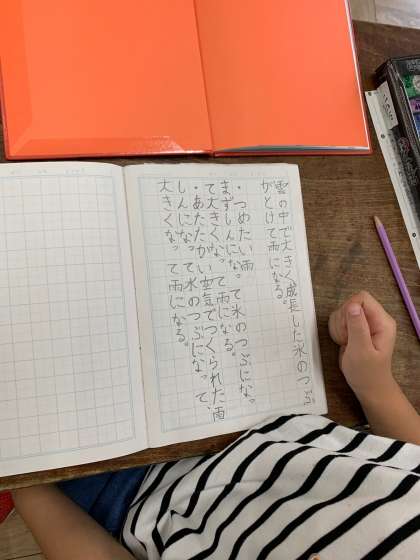 雲の中で大きく成長した氷のつぶ
がとけて雨になる。
・つめたい雨
まずしんになって氷のつぶにな
って大きくなって雨になる。
・あたたかい空気でつくられた雨
しんになって水のつぶになって、
大きくなって雨になる。